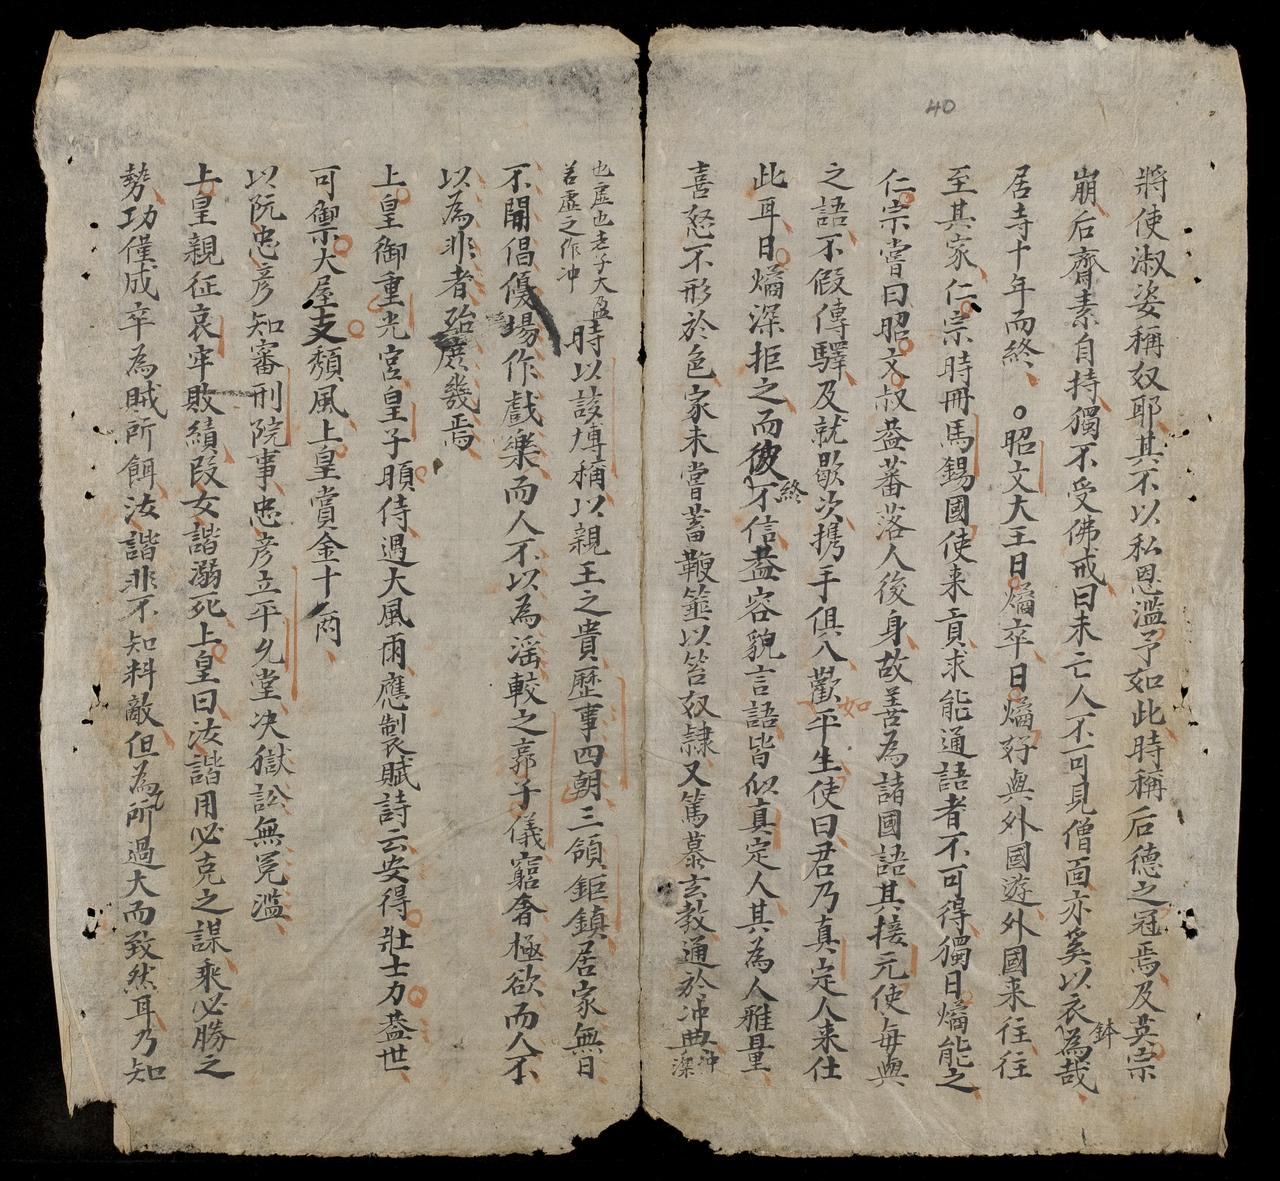 40
將使淑姿稱奴耶其不以私恩濫予如此時稱后德之冠焉及英宗
崩后齋素自持獨不受佛戒曰未亡人不可見僧面亦奚以衣鉢為哉
居寺十年而終○昭文大王日燏卒日燏好與外國遊外國来往往
至其家仁宗時冊馬錫國使来貢求能通語者不可得獨日燏能之
仁宗嘗曰昭文叔葢蕃落人後身故善為諸國語其接元使每與
之語不假傳驛及就歇次携手俱入歡如平生使曰君乃真定人来仕
此耳日燏深拒之而彼終不信葢容貌言語皆似真定人其為人雅量
喜怒不形於色家未嘗蓄鞭箠以笞奴隷又篤慕玄教通於冲典冲深
也虛也老子大盈
若虛之作冲
時以該博稱以親王之貴歷事四朝三領鉅鎮居家無日
不開倡優場作戲樂而人不以為滛較之郭子儀窮奢極欲而人不
以為非者殆庶幾焉
上皇御重光宮皇子頥侍遇大風雨應製賦詩云安得壯士力葢世
可御禦大屋支頽風上皇賞金十兩
以阮忠彦知審刑院事忠彦立平允堂决獄訟無冤濫
上皇親征哀牢敗績叚女諧溺死上皇曰汝諧用必克之謀乘必勝之
勢功僅成卒為賊所餌汝諧非不知料敵但為所過大而致然耳乃知